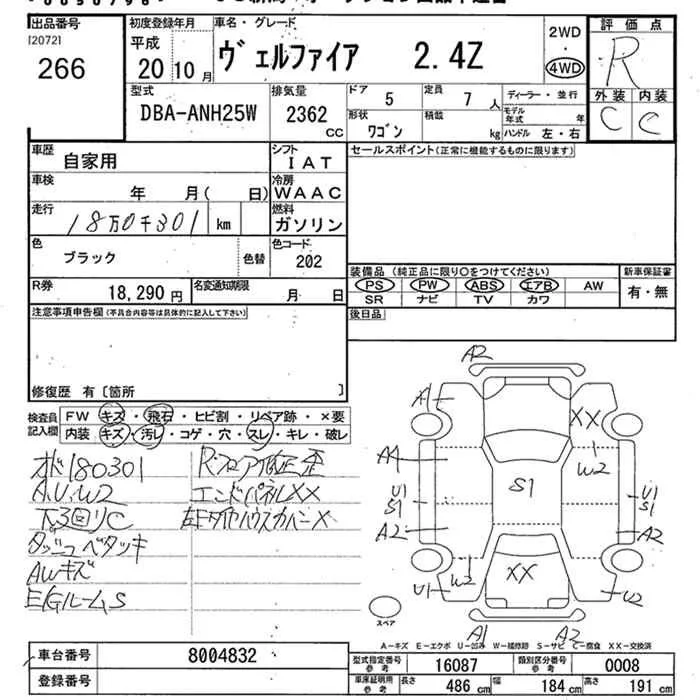 出品番号
[20721
266
初度登録年月
平成
20年10月
車名・グレード
ヴェルファイア 2.4Z
2WD
・
4WD
評価点
R
外装 内装
C C
型式
DBA-ANH25W
排気量
2362
CC
ドア
5
定員
7人
形状
ワゴン
積載
kg
ディーラー・並行
モデル年式 年
ハンドル 左・右
車歴
自家用
シフト
IAT
車検
年 月( 日)
冷房
WAAC
走行
18万0千301 km
燃料
ガソリン
色
ブラック
色替
色コード
202
R券
18,290円
名変通知期限
月 日
セールスポイント(正常に機能するものに限ります)
装備品(純正品に限り○をつけてください)
PS PW ABS エアB AW
SR ナビ TV カワ
新車保証書
有・無
後日品
注意事項申告欄(不具合内容等は具体的に記入して下さい)
修復歴 有〔箇所 〕
検査員
記入欄
FW キズ・飛石・ヒビ割・リペア跡・×要
内装 キズ・汚レ・コゲ・穴・スレ・キレ・破レ
オド180301
A.U.W2
下3回りC
ダッシュベタツキ
AWキズ
E/GルームS
R.フロア修正歪
エンドパネルXX
左F タイヤハウスカバーX
A2
A1
XX
W2
A4
S1
U1
S1
U1
S1
A2
A2
U1
W2
XX
U2
A1
A2
スペア
A-キズ E-エクボ U-凹み W-補修跡 S-サビ C-腐食 XX-交換済
車台番号
8004832
登録番号
型式指定番号
参考
16087
類別区分番号
参考
0008
車庫証明用
参考
長さ 486cm 幅 184cm 高さ 191cm